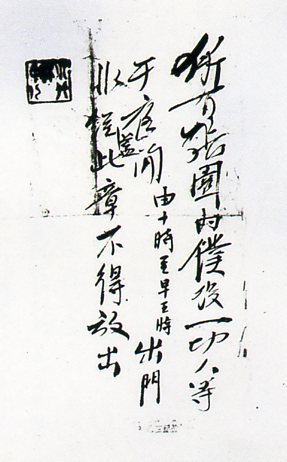 所有張園内僕役一切人等
于夜間由十時至早五時出門
非經蓋此章不得放出